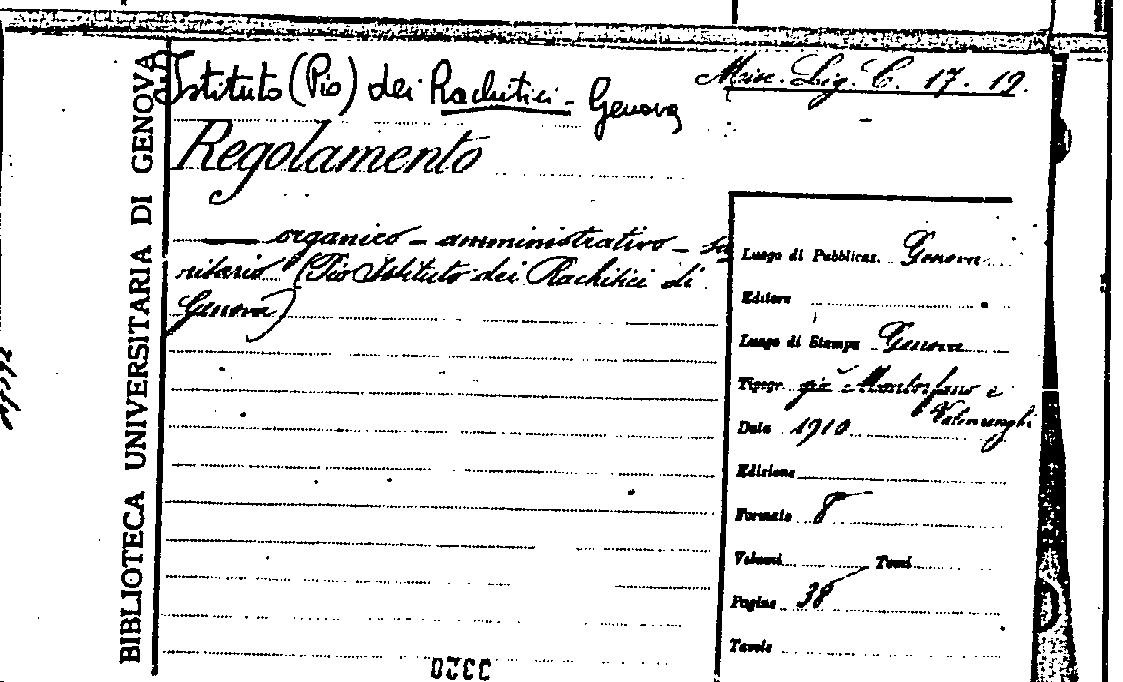 BIBLIOTECA UNIVERSITARIA DI GENOVA
Istituto (Pio) dei Rachitici - Genova
Misc. Lig. C. 17. 19.
Regolamento
organico - amministrativo - sa
nitario (Pio Istituto dei Rachitici di
Genova)
Luogo di Pubblicaz. Genova
Editore
Luogo di Stampa Genova
Tipogr. già Montorfano e
Valcarenghi
Data 1910
Edizione
Formato 8
Volumi Tomi
Pagine 38
Tavole